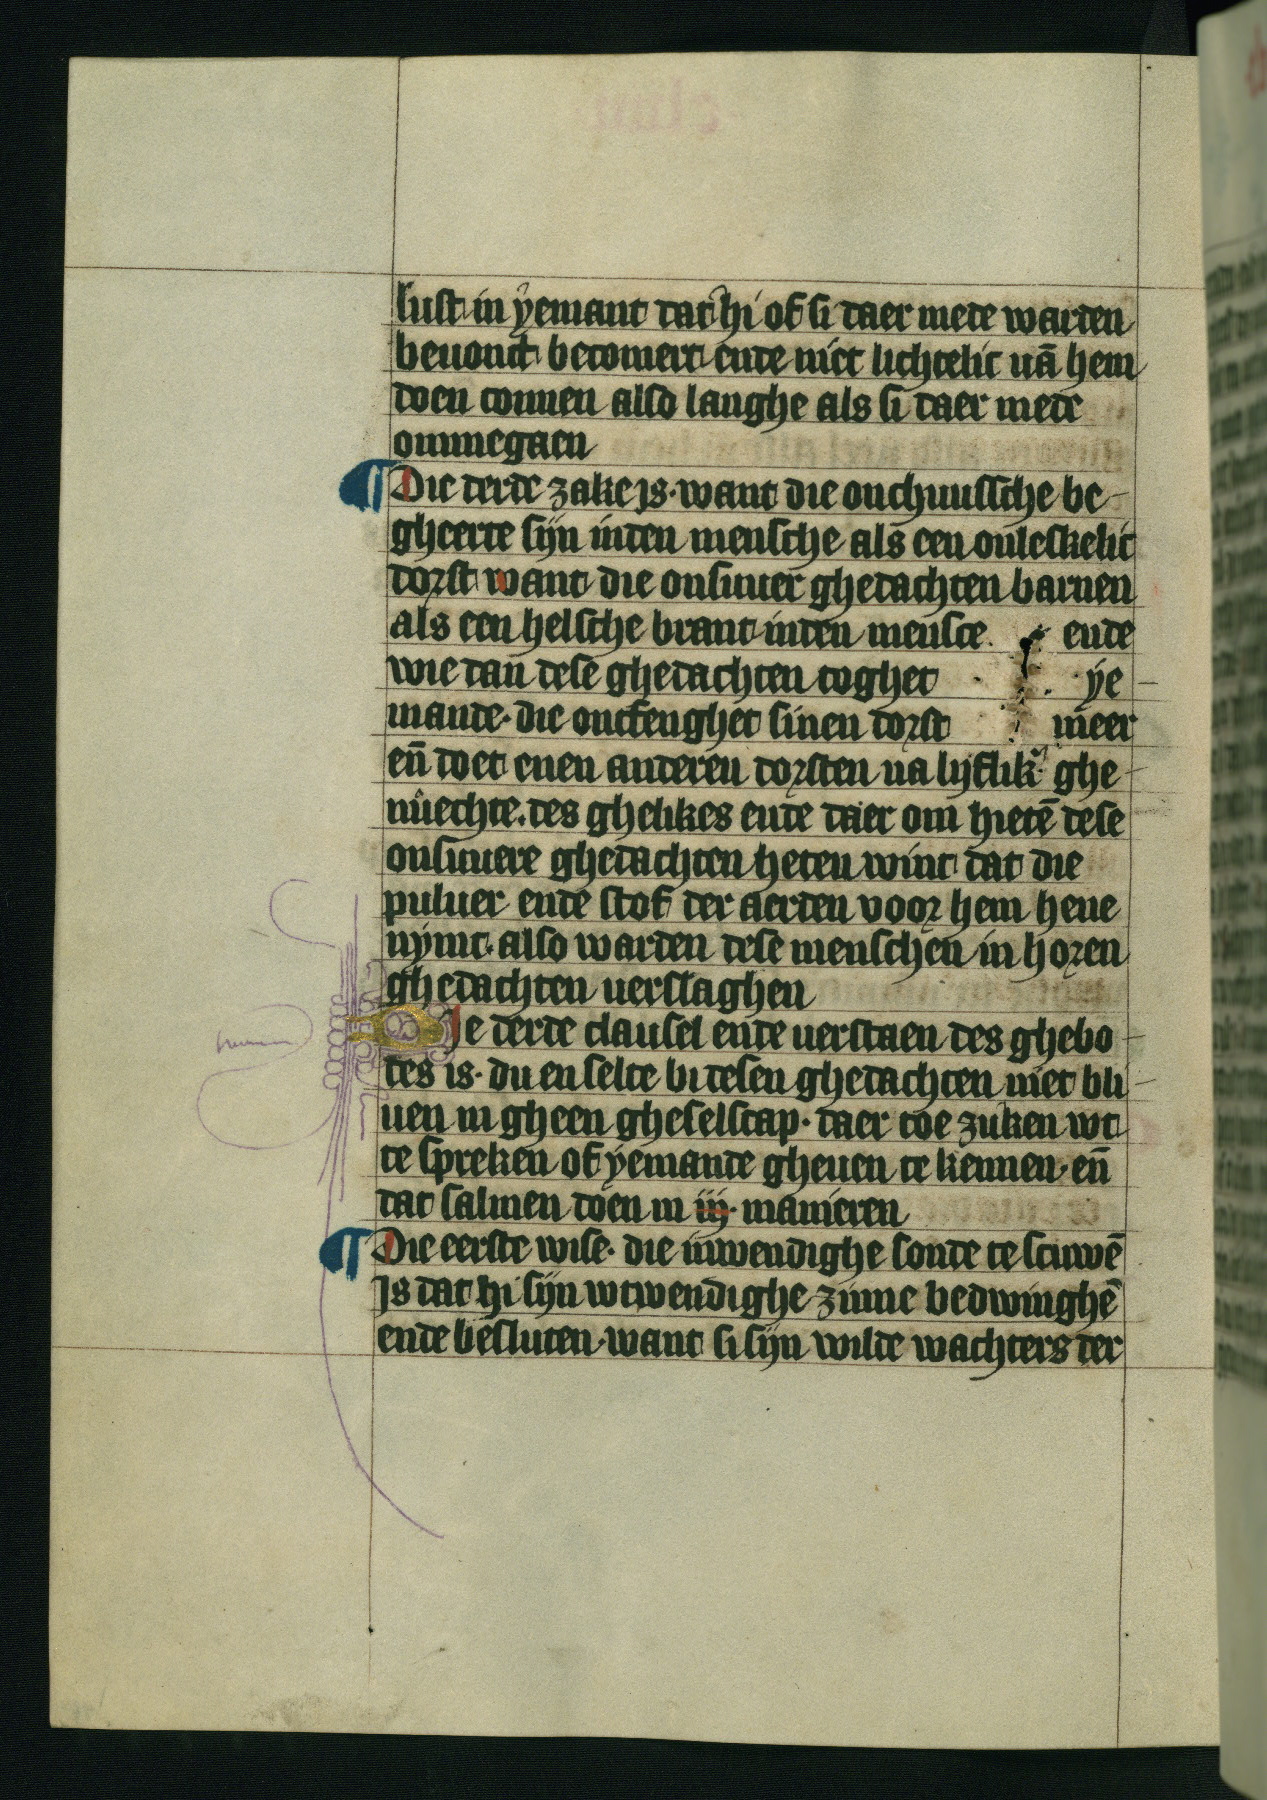 lust in yemant dat hi of si daer mede warden
beuonden becomert ende niet lichtelic uā hem
doen connen also langhe als si daer mede
ommegaen
¶ Die derde zake js · want die onchuussche be
gheerte sijn inden mensche als een onleskelic
dorst want die onsuuer ghedachten barnen
als een helsche brant inden mensce ende
wie dan dese ghedachten toghet ye
mande · die ontfenghet sinen dorst meer
en̄ doet enen anderen dorsten na lijflik ghe
nuechte · des ghelikes ende daer om hietē dese
onsuuere ghedachten heten wint dat die
puluer ende stof der aerden voor hem hene
nymt · also warden dese menschen in horen
ghedachten uerslaghen
Die derde clausel ende uerstaen des ghebo
des is · du en selte bi desen ghedachten niet bli
uen in gheen gheselscap · daer toe zuken wt
te spreken of yemande gheuen te kennen · en̄
dat salmen doen in iij · manieren
¶ Die eerste wise · die inwendighe sonde te scuwē
Js dat hi sijn wtwendighe zinne bedwinghē
ende besluten · want si sijn wilde wachters der